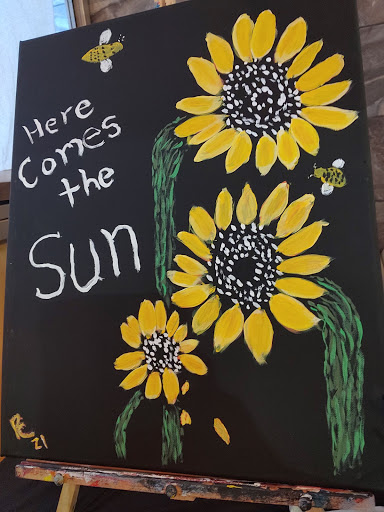 Here
Comes
the
Sun
RC
21